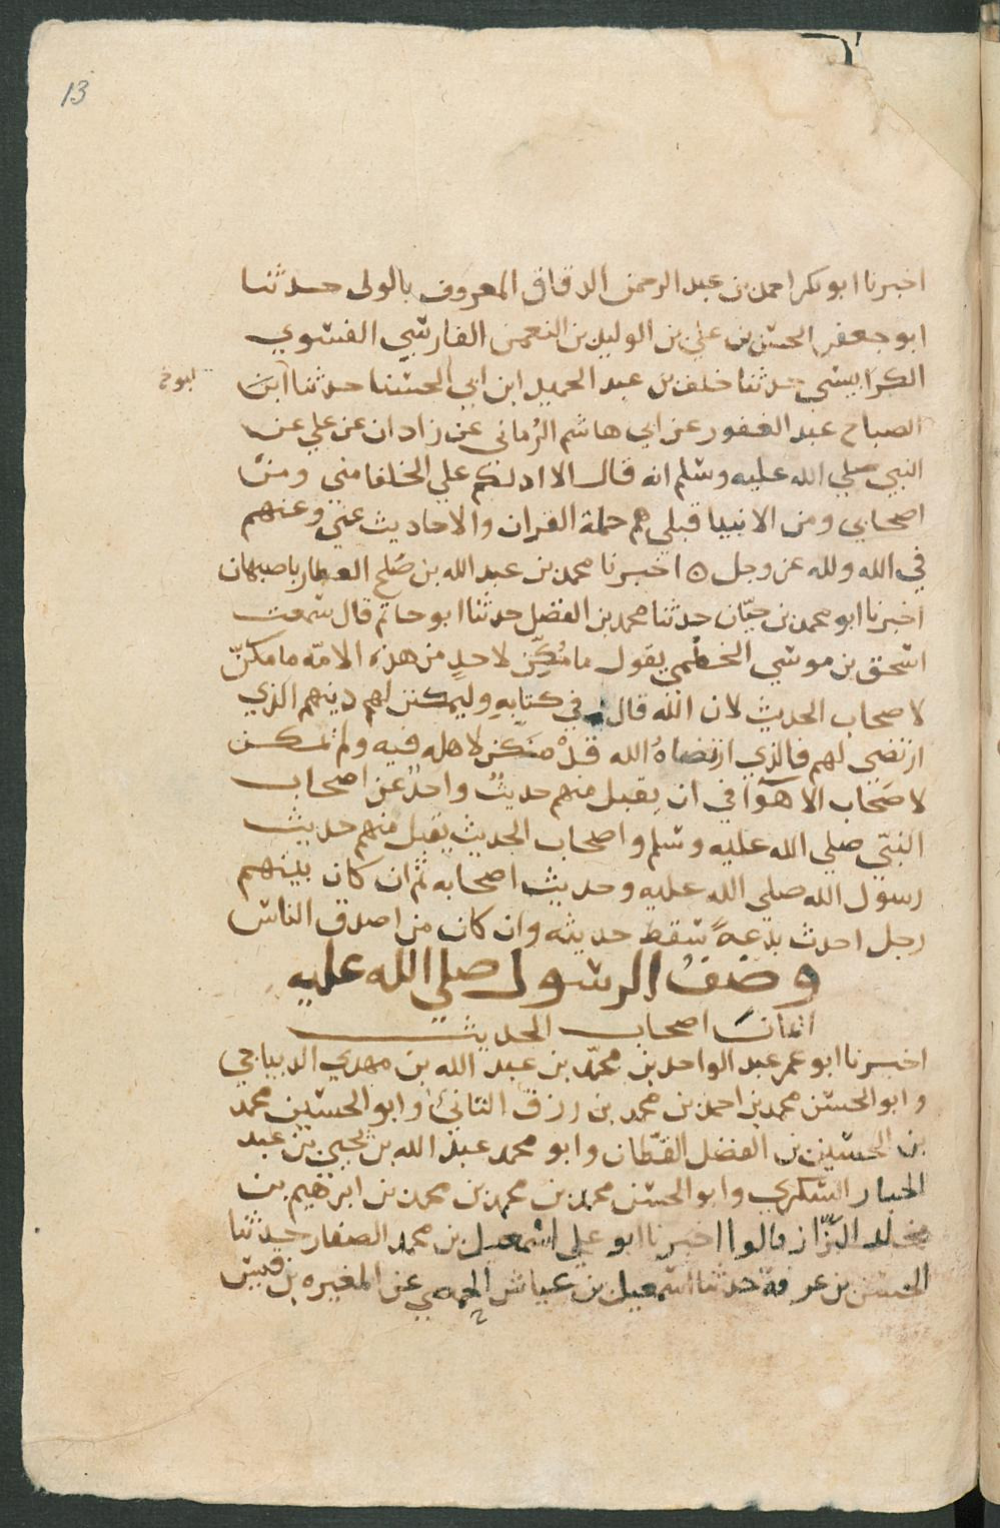 13
اخبرنا ابو بكر احمد بن عبد الرحمن الدقاق المعروف بالولي حدثنا
ابو جعفر الحسن بن علي بن الوليد بن النعمن الفارسي الفسوي
الكرابيسي حدثنا خلف بن عبد الحميد ابن ابي الحسنا حدثنا ابن
الصباح عبد الغفور عن ابي هاشم الرُماني عن زاذان عن علي عن
النبي صلي الله عليه وسلم انه قال الا ادلكم علي الخلفا مني ومن
اصحابي ومن الانبيا قبلي هم حملة القران والاحاديث عني وعنهم
في الله ولله عز وجل ه اخبرنا محمد بن عبد الله بن صلح العطار باصبهان
اخبرنا ابو محمد بن حيّان حدثنا محمد بن الفضل حدثنا ابو حاتم قال سمعت
اسحق بن موسي الخطمي يقول ما مُكِّن لاحدٍ من هذه الامّه ما مكنّ
لاصحاب الحديث لان الله قال في كتابِهِ وليمكنن لهم دينهم الذي
ارتضي لهم فالذي ارتضاهُ الله قدْ مكن لاهله فيه ولم تمكن
لاصحَاب الاهوآ في ان يقبل منهم حديثٌ واحدٌ عن اصحاب
النبّي صلي الله عليه وسلم واصحاب الحديث يقبل منهم حديث
رسول الله صلي الله عليه وحديث اصحابه ثم ان كان بينهم
رجل احدث بدعةً سقط حديثه وان كان من اصدق الناس
وصفُ الرسول صلي الله عليه
ايمانَ اصحاب الحديث
اخبرنا ابو عمر عبد الواحد بن محمّد بن عبد الله بن مهدي الديباجي
وابو الحسن محمد بن احمد بن محمد بن رزق التانئ وابو الحسين محمد
بن الحسين بن الفضل القطّان وابو محمد عبد الله بن يحيي بن عبد
الجبار السكري وابو الحسن محمد بن محمد بن محمد بن ابرهيم بن
مخلد البزّاز قالوا اخبرنا ابو علي اسمعيل بن محمد الصفار حدثنا
الحسن بن عرفة حدثنا اسمعيل بن عياش الحمصي عن المغيره بن قيس